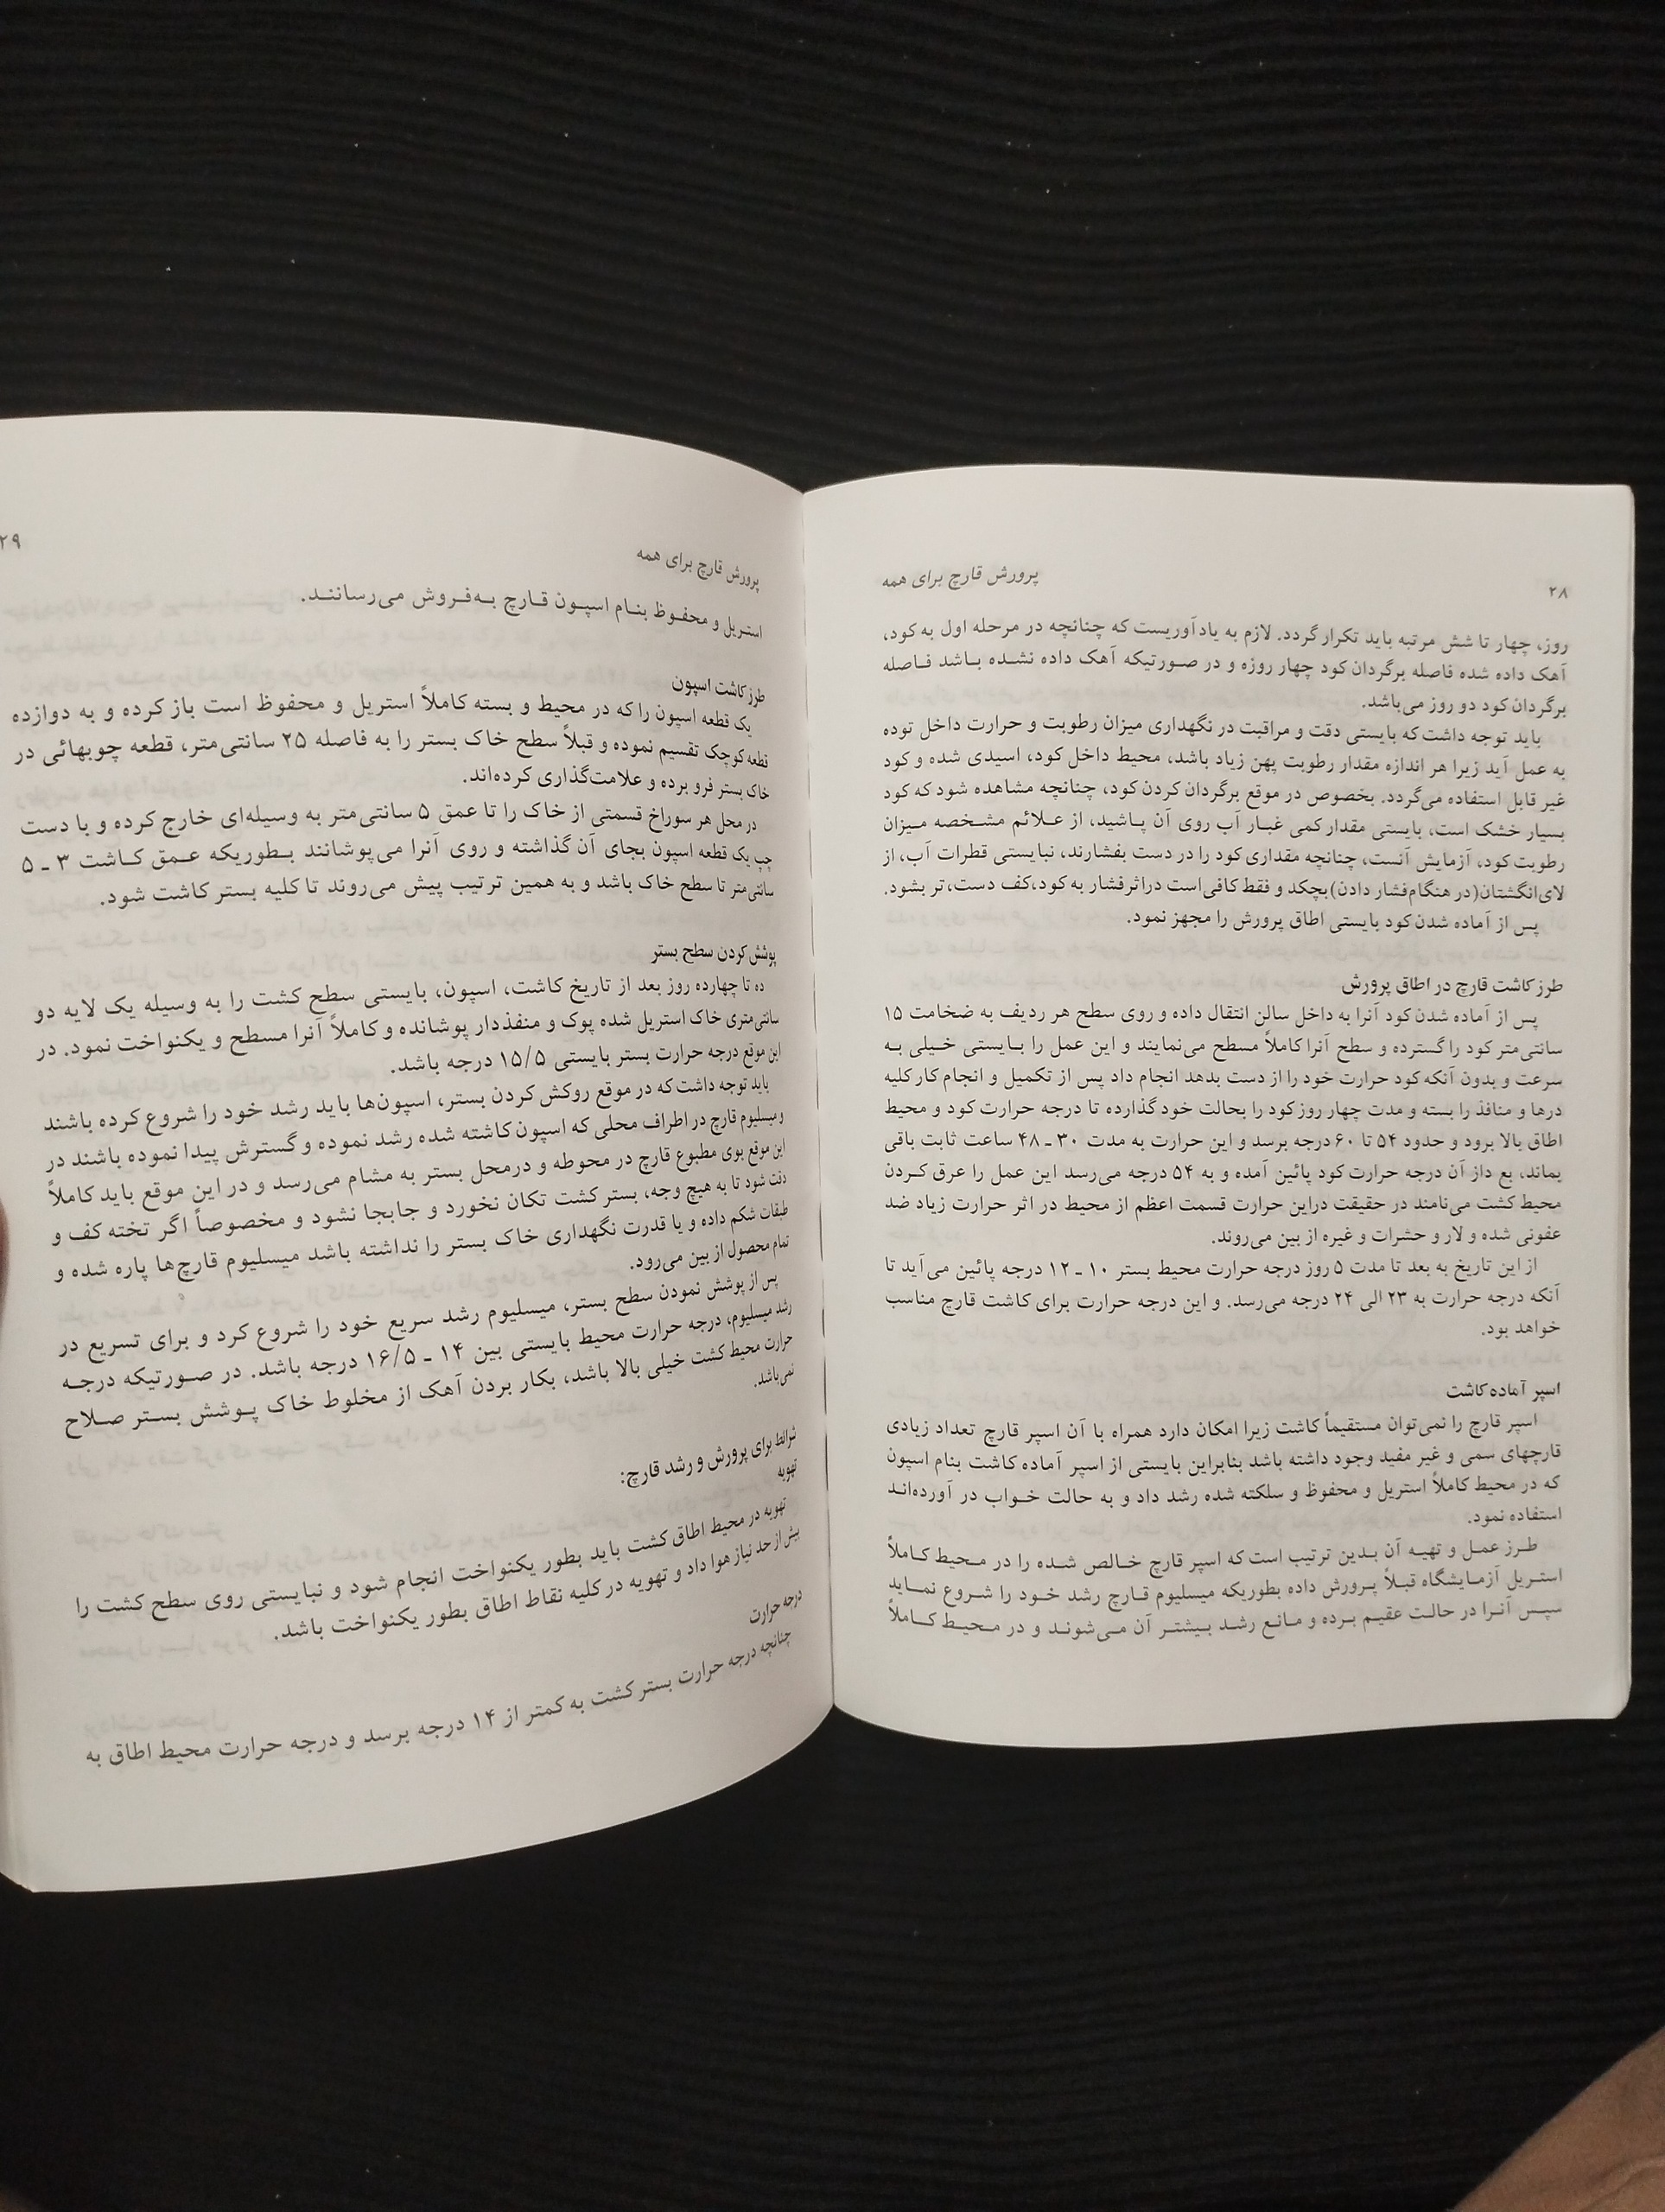 ۲۸
پرورش قارچ برای همه
روز، چهار تا شش مرتبه باید تکرار گردد. لازم به یادآوریست که چنانچه در مرحله اول به کود،
آهک داده شده فاصله برگردان کود چهار روزه و در صورتیکه آهک داده نشده باشد فاصله
برگردان کود دو روز می‌باشد.
باید توجه داشت که بایستی دقت و مراقبت در نگهداری میزان رطوبت و حرارت داخل توده
به عمل آید زیرا هر اندازه مقدار رطوبت پهن زیاد باشد، محیط داخل کود، اسیدی شده و کود
غیر قابل استفاده می‌گردد. بخصوص در موقع برگردان کردن کود، چنانچه مشاهده شود که کود
بسیار خشک است، بایستی مقدار کمی غبار آب روی آن پاشید، از علائم مشخصه میزان
رطوبت کود، آزمایش آنست، چنانچه مقداری کود را در دست بفشارند، نبایستی قطرات آب، از
لای انگشتان (در هنگام فشار دادن) بچکد و فقط کافی است در اثر فشار به کود، کف دست، تر بشود.
پس از آماده شدن کود بایستی اطاق پرورش را مجهز نمود.
طرز کاشت قارچ در اطاق پرورش
پس از آماده شدن کود آنرا به داخل سالن انتقال داده و روی سطح هر ردیف به ضخامت ۱۵
سانتی‌متر کود را گسترده و سطح آنرا کاملاً مسطح می‌نمایند و این عمل را بایستی خیلی به
سرعت و بدون آنکه کود حرارت خود را از دست بدهد انجام داد پس از تکمیل و انجام کار کلیه
درها و منافذ را بسته و مدت چهار روز کود را بحالت خود گذارده تا درجه حرارت کود و محیط
اطاق بالا برود و حدود ۵۴ تا ۶۰ درجه برسد و این حرارت به مدت ۳۰ ـ ۴۸ ساعت ثابت باقی
بماند، بع داز آن درجه حرارت کود پائین آمده و به ۵۴ درجه می‌رسد این عمل را عرق کردن
محیط کشت می‌نامند در حقیقت دراین حرارت قسمت اعظم از محیط در اثر حرارت زیاد ضد
عفونی شده و لار و حشرات و غیره از بین می‌روند.
از این تاریخ به بعد تا مدت ۵ روز درجه حرارت محیط بستر ۱۰ ـ ۱۲ درجه پائین می‌آید تا
آنکه درجه حرارت به ۲۳ الی ۲۴ درجه می‌رسد. و این درجه حرارت برای کاشت قارچ مناسب
خواهد بود.
اسپر آماده کاشت
اسپر قارچ را نمی‌توان مستقیماً کاشت زیرا امکان دارد همراه با آن اسپر قارچ تعداد زیادی
قارچهای سمی و غیر مفید وجود داشته باشد بنابراین بایستی از اسپر آماده کاشت بنام اسپون
که در محیط کاملاً استریل و محفوظ و سلکته شده رشد داد و به حالت خواب در آورده‌اند
استفاده نمود.
طرز عمل و تهیه آن بدین ترتیب است که اسپر قارچ خالص شده را در محیط کاملاً
استریل آزمایشگاه قبلاً پرورش داده بطوریکه میسلیوم قارچ رشد خود را شروع نماید
سپس آنرا در حالت عقیم برده و مانع رشد بیشتر آن می‌شوند و در محیط کاملاً
پرورش قارچ برای همه
۲۹
استریل و محفوظ بنام اسپون قارچ به‌فروش می‌رسانند.
طرز کاشت اسپون
یک قطعه اسپون را که در محیط و بسته کاملاً استریل و محفوظ است باز کرده و به دوازده
قطعه کوچک تقسیم نموده و قبلاً سطح خاک بستر را به فاصله ۲۵ سانتی‌متر، قطعه چوبهائی در
خاک بستر فرو برده و علامت‌گذاری کرده‌اند.
در محل هر سوراخ قسمتی از خاک را تا عمق ۵ سانتی‌متر به وسیله‌ای خارج کرده و با دست
چپ یک قطعه اسپون بجای آن گذاشته و روی آنرا می‌پوشانند بطوریکه عمق کاشت ۳ ـ ۵
سانتی‌متر تا سطح خاک باشد و به همین ترتیب پیش می‌روند تا کلیه بستر کاشت شود.
پوشش کردن سطح بستر
ده تا چهارده روز بعد از تاریخ کاشت، اسپون، بایستی سطح کشت را به وسیله یک لایه دو
سانتی‌متری خاک استریل شده پوک و منفذدار پوشانده و کاملاً آنرا مسطح و یکنواخت نمود. در
این موقع درجه حرارت بستر بایستی ۱۵/۵ درجه باشد.
باید توجه داشت که در موقع روکش کردن بستر، اسپون‌ها باید رشد خود را شروع کرده باشند
و میسلیوم قارچ در اطراف محلی که اسپون کاشته شده رشد نموده و گسترش پیدا نموده باشند در
این موقع بوی مطبوع قارچ در محوطه و درمحل بستر به مشام می‌رسد و در این موقع باید کاملاً
دقت شود تا به هیچ وجه، بستر کشت تکان نخورد و جابجا نشود و مخصوصاً اگر تخته کف و
طبقات شکم داده و یا قدرت نگهداری خاک بستر را نداشته باشد میسلیوم قارچ‌ها پاره شده و
تمام محصول از بین می‌رود.
پس از پوشش نمودن سطح بستر، میسلیوم رشد سریع خود را شروع کرد و برای تسریع در
رشد میسلیوم، درجه حرارت محیط بایستی بین ۱۴ ـ ۱۶/۵ درجه باشد. در صورتیکه درجه
حرارت محیط کشت خیلی بالا باشد، بکار بردن آهک از مخلوط خاک پوشش بستر صلاح
نمی‌باشد.
شرائط برای پرورش و رشد قارچ:
تهویه
تهویه در محیط اطاق کشت باید بطور یکنواخت انجام شود و نبایستی روی سطح کشت را
بیش از حد نیاز هوا داد و تهویه در کلیه نقاط اطاق بطور یکنواخت باشد.
درجه حرارت
چنانچه درجه حرارت بستر کشت به کمتر از ۱۴ درجه برسد و درجه حرارت محیط اطاق به